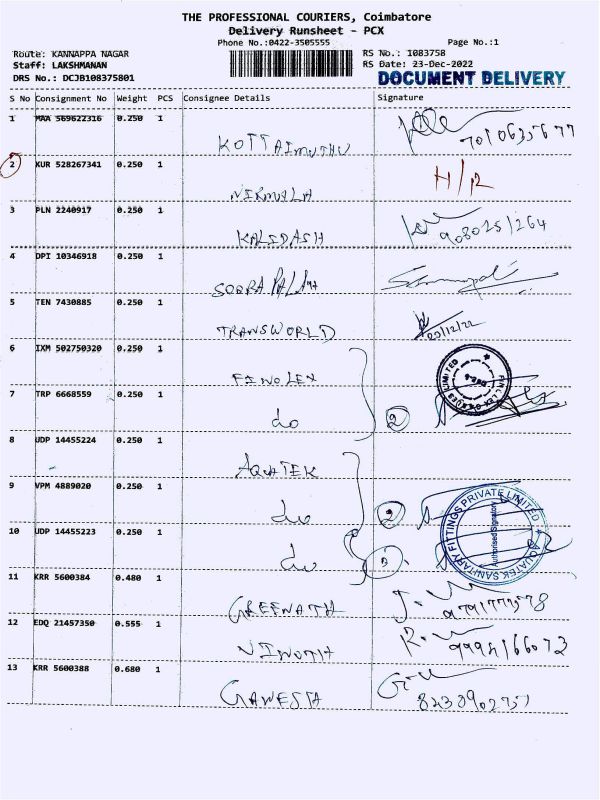 THE PROFESSIONAL COURIERS, Coimbatore
Delivery Runsheet - PCX
Phone No.:0422-3505555
Page No.:1
Route: KANNAPPA NAGAR
RS No.: 1083758
Staff: LAKSHMANAN
RS Date: 23-Dec-2022
DRS No.: DCJB108375801
DOCUMENT DELIVERY
S No Consignment No Weight PCS Consignee Details Signature
1 MAA 569622316 0.250 1
KOTTAIMUTHU
2 KUR 528267341 0.250 1
NIRMALA
3 PLN 2240917 0.250 1
KALIDASH
4 DPI 10346918 0.250 1
5 TEN 7430885 0.250 1
TRANSWORLD
23/12/22
6 IXM 502750320 0.250 1
FINOLEX
7 TRP 6668559 0.250 1
do 2
8 UDP 14455224 0.250 1
AQUATEK
9 VPM 4889020 0.250 1
do 2
AQUATEK SANITARY FITTINGS PRIVATE LIMITED
Authorised Signatory
10 UDP 14455223 0.250 1
do
11 KRR 5600384 0.480 1
12 EDQ 21457350 0.555 1
13 KRR 5600388 0.680 1